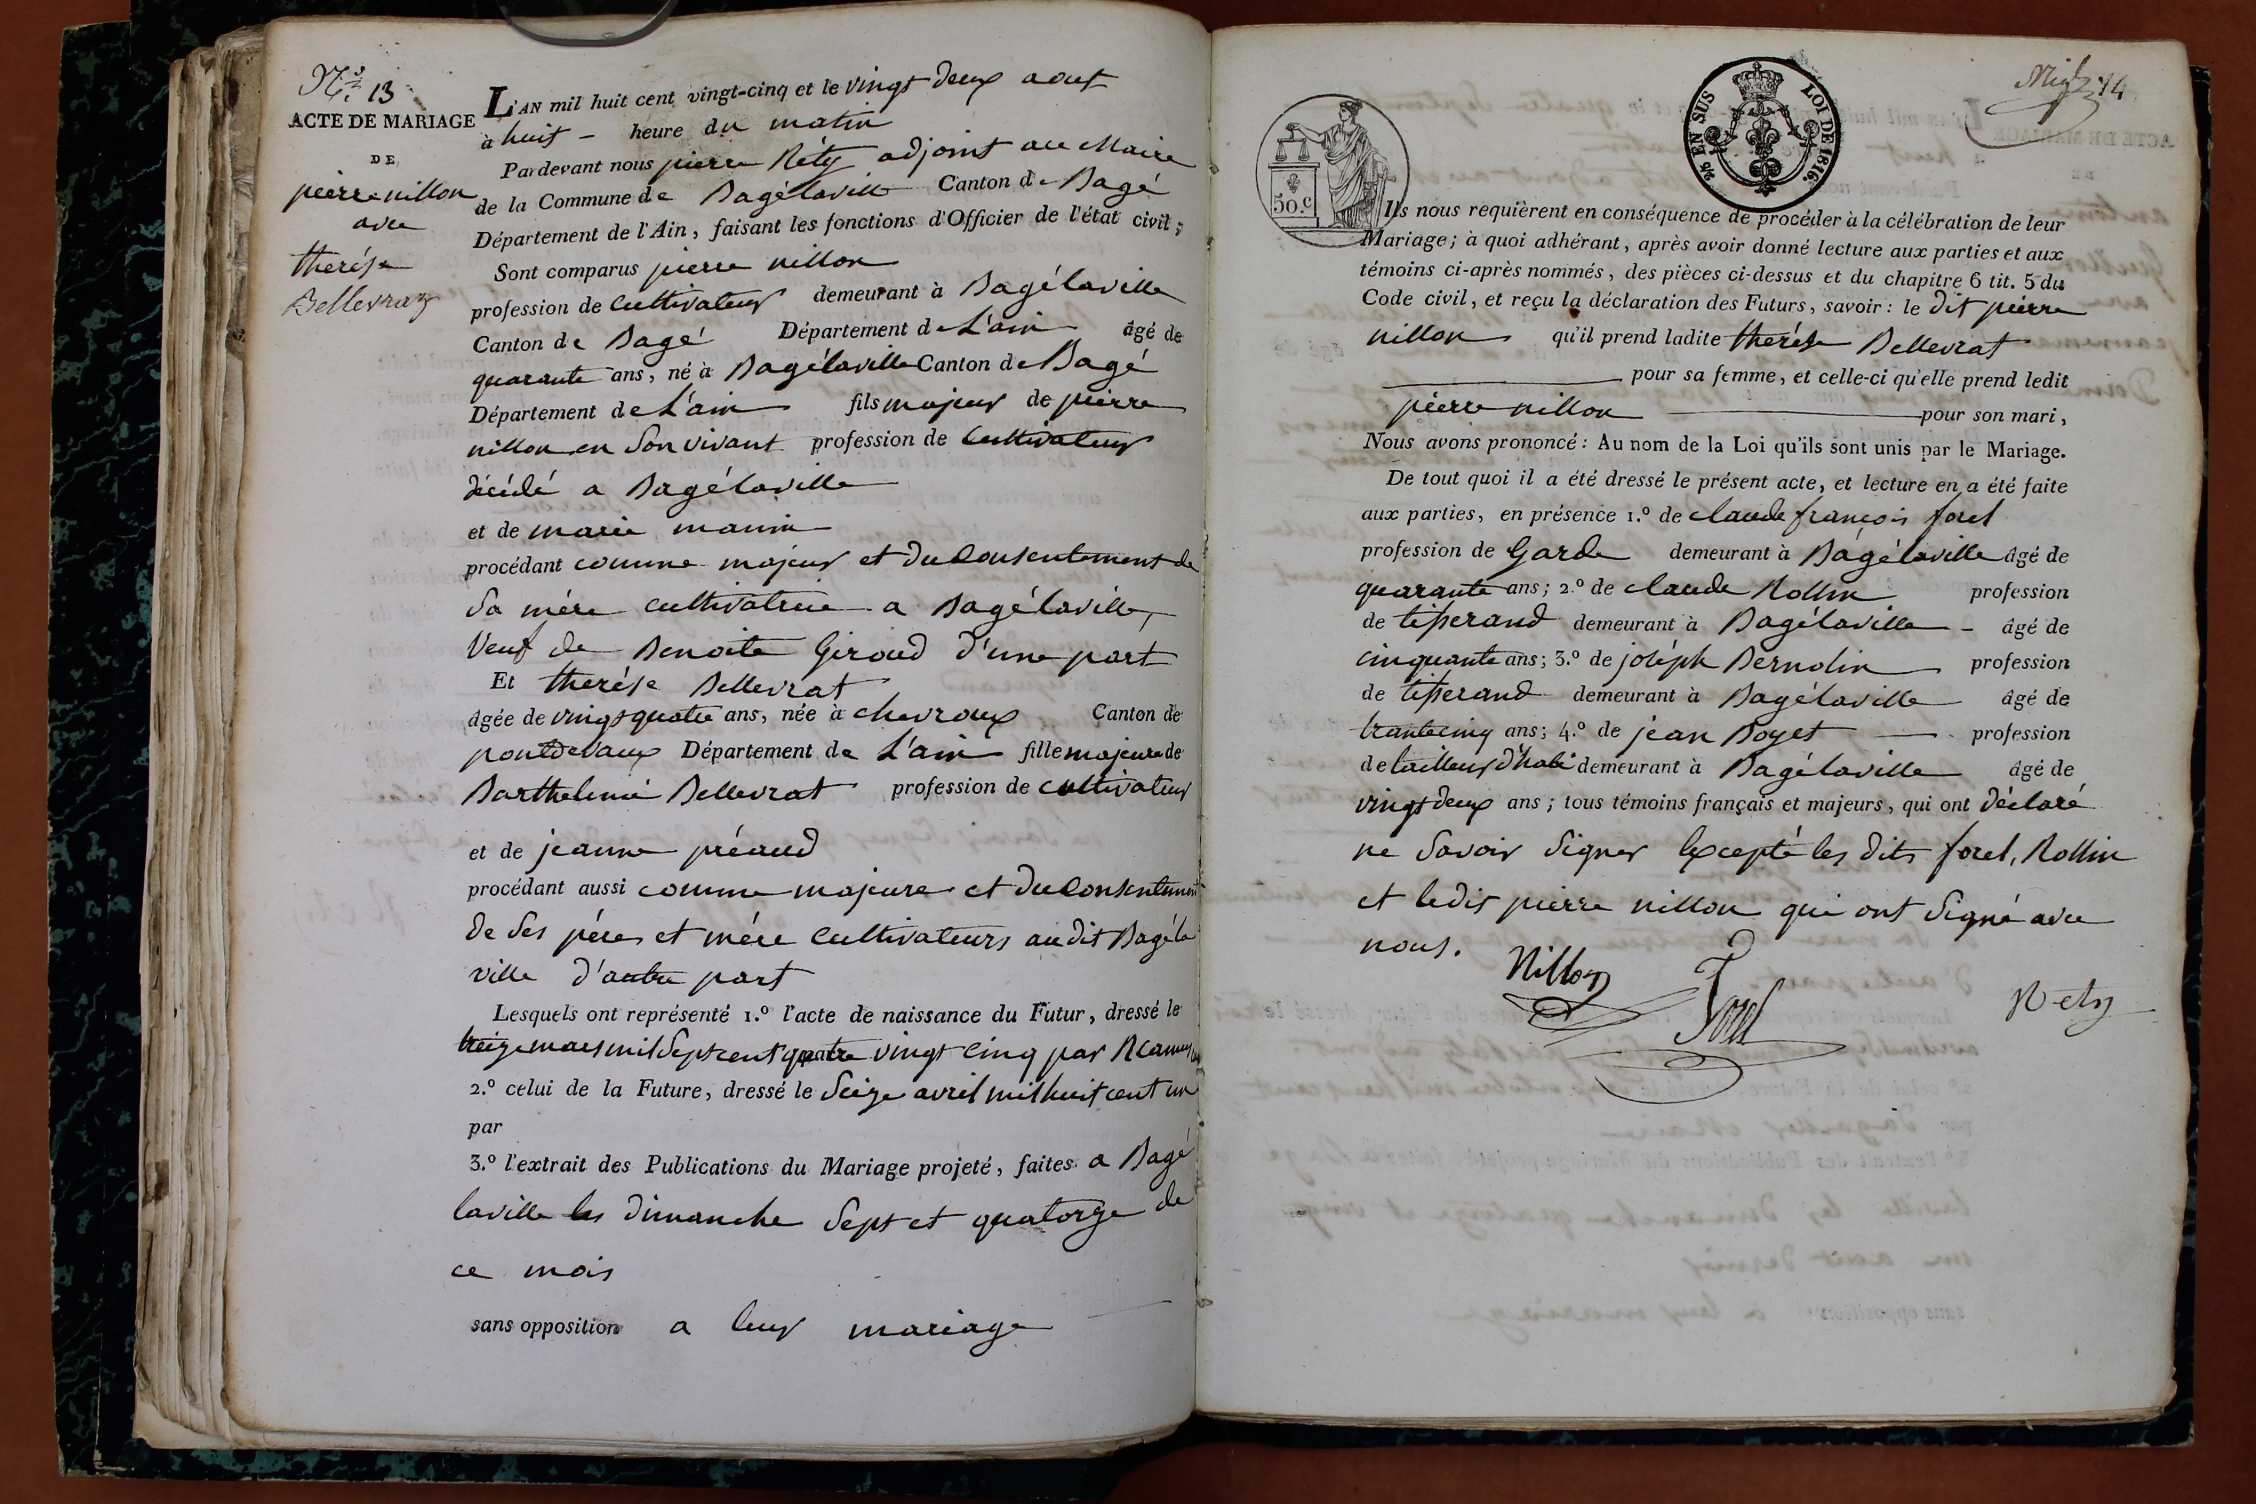 N.º 13
ACTE DE MARIAGE
DE
pierre nillon
avec
therése
Bellevrat
L'AN mil huit cent vingt-cinq et le vingt deux aout
à huit heure du matin
Pardevant nous pierre Réty adjoint au Maire
de la Commune de Bagélaville Canton de Bagé
Département de l'Ain, faisant les fonctions d'Officier de l'état civil;
Sont comparus pierre nillon
profession de cultivateur demeurant à Bagélaville
Canton de Bagé Département de L'ain âgé de
quarante ans, né à Bagélaville Canton de Bagé
Département de L'ain fils majeur de pierre
nillon en Son vivant profession de Cultivateur
décédé a Bagélaville
et de marie manin
procédant comme majeur et du Consentement de
Sa mére cultivatrice a Bagélaville,
Veuf de Benoite Giroud d'une part
Et therése Bellevrat
âgée de vingt quatre ans, née à chevroux Canton de
pontdevaux Département de L'ain fille majeure de
Barthelemi Bellevrat profession de cultivateur
et de jeanne préaud
procédant aussi comme majeure et du Consentement
de Ses pére et mére Cultivateurs au dit Bagéla
ville d'autre part
Lesquels ont représenté 1.º l'acte de naissance du Futur, dressé le
treize mars mil Sept cent quatre vingt cinq par
2.º celui de la Future, dressé le Seize avril mil huit cent un
par
3.º l'extrait des Publications du Mariage projeté, faites a Bagé
laville les dimanche Sept et quatorze de
ce mois
sans opposition a leur mariage
14
50.c
25 EN SUS LOI DE 1816.
Ils nous requièrent en conséquence de procéder à la célébration de leur
Mariage; à quoi adhérant, après avoir donné lecture aux parties et aux
témoins ci-après nommés, des pièces ci-dessus et du chapitre 6 tit. 5 du
Code civil, et reçu la déclaration des Futurs, savoir: le dit pierre
nillon qu'il prend ladite therése Bellevrat
pour sa femme, et celle-ci qu'elle prend ledit
pierre nillon pour son mari,
Nous avons prononcé: Au nom de la Loi qu'ils sont unis par le Mariage.
De tout quoi il a été dressé le présent acte, et lecture en a été faite
aux parties, en présence 1.º de claude françois forel
profession de Garde demeurant à Bagélaville âgé de
quarante ans; 2.º de claude Rollin profession
de tisserand demeurant à Bagélaville âgé de
cinquante ans; 3.º de joséph Bernolin profession
de tisserand demeurant à Bagélaville âgé de
trantecinq ans; 4.º de jean Boyet profession
de tailleur d'habi demeurant à Bagélaville âgé de
vingt deux ans; tous témoins français et majeurs, qui ont déclaré
ne Savoir Signer Excepté les dits forel, Rollin
et ledit pierre nillon qui ont Signé avec
nous.
Nillon Forel Réty